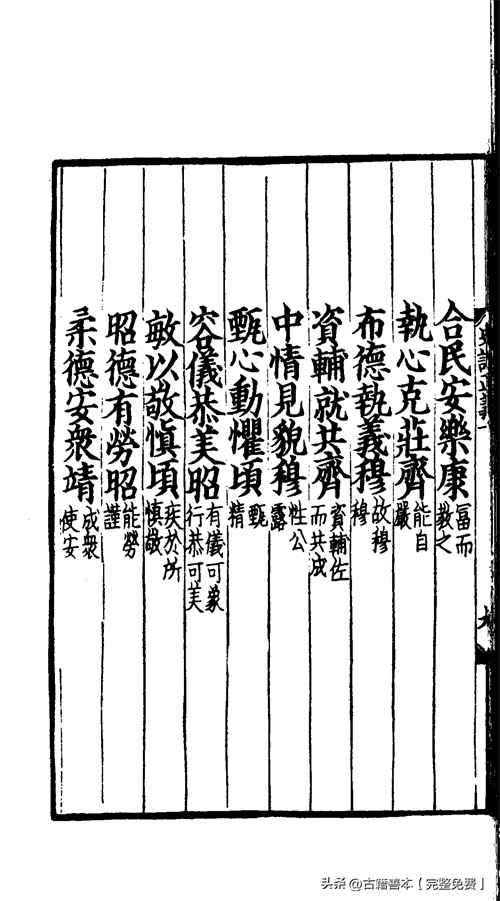 合民安樂康富而教之
執心克莊齊能自嚴
布德執義穆故穆穆
資輔就共齊資輔佐而共成
中情見貌穆性公露
甄心動懼頃甄精
容儀恭美昭有儀可象行恭可美
敏以敬慎頃疾於所慎敬
昭德有勞昭能勞謹
柔德安衆靖成衆使安
头条 @古籍善本【完整免费】